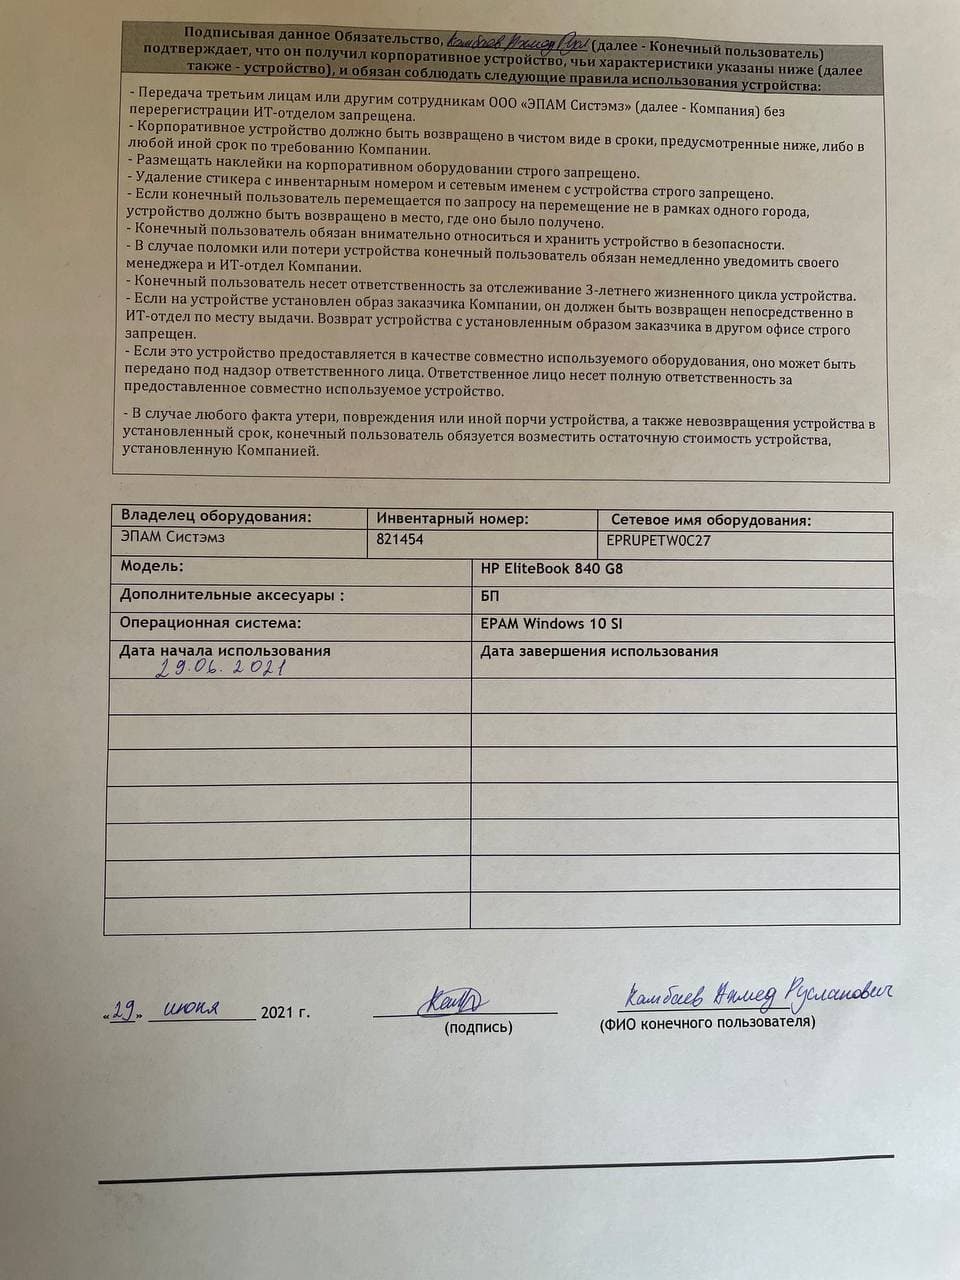 Подписывая данное Обязательство, Камбаев Ахмед Русл (далее - Конечный пользователь)
подтверждает, что он получил корпоративное устройство, чьи характеристики указаны ниже (далее
также - устройство), и обязан соблюдать следующие правила использования устройства:
- Передача третьим лицам или другим сотрудникам ООО «ЭПАМ Систэмз» (далее - Компания) без
перерегистрации ИТ-отделом запрещена.
- Корпоративное устройство должно быть возвращено в чистом виде в сроки, предусмотренные ниже, либо в
любой иной срок по требованию Компании.
- Размещать наклейки на корпоративном оборудовании строго запрещено.
- Удаление стикера с инвентарным номером и сетевым именем с устройства строго запрещено.
- Если конечный пользователь перемещается по запросу на перемещение не в рамках одного города,
устройство должно быть возвращено в место, где оно было получено.
- Конечный пользователь обязан внимательно относиться и хранить устройство в безопасности.
- В случае поломки или потери устройства конечный пользователь обязан немедленно уведомить своего
менеджера и ИТ-отдел Компании.
- Конечный пользователь несет ответственность за отслеживание 3-летнего жизненного цикла устройства.
- Если на устройстве установлен образ заказчика Компании, он должен быть возвращен непосредственно в
ИТ-отдел по месту выдачи. Возврат устройства с установленным образом заказчика в другом офисе строго
запрещен.
- Если это устройство предоставляется в качестве совместно используемого оборудования, оно может быть
передано под надзор ответственного лица. Ответственное лицо несет полную ответственность за
предоставленное совместно используемое устройство.
- В случае любого факта утери, повреждения или иной порчи устройства, а также невозвращения устройства в
установленный срок, конечный пользователь обязуется возместить остаточную стоимость устройства,
установленную Компанией.
Владелец оборудования: Инвентарный номер: Сетевое имя оборудования:
ЭПАМ Систэмз 821454 EPRUPETW0C27
Модель: HP EliteBook 840 G8
Дополнительные аксесуары : БП
Операционная система: EPAM Windows 10 SI
Дата начала использования Дата завершения использования
29.06.2021
«29» июня 2021 г. Камбаев Ахмед Русланович
(подпись) (ФИО конечного пользователя)